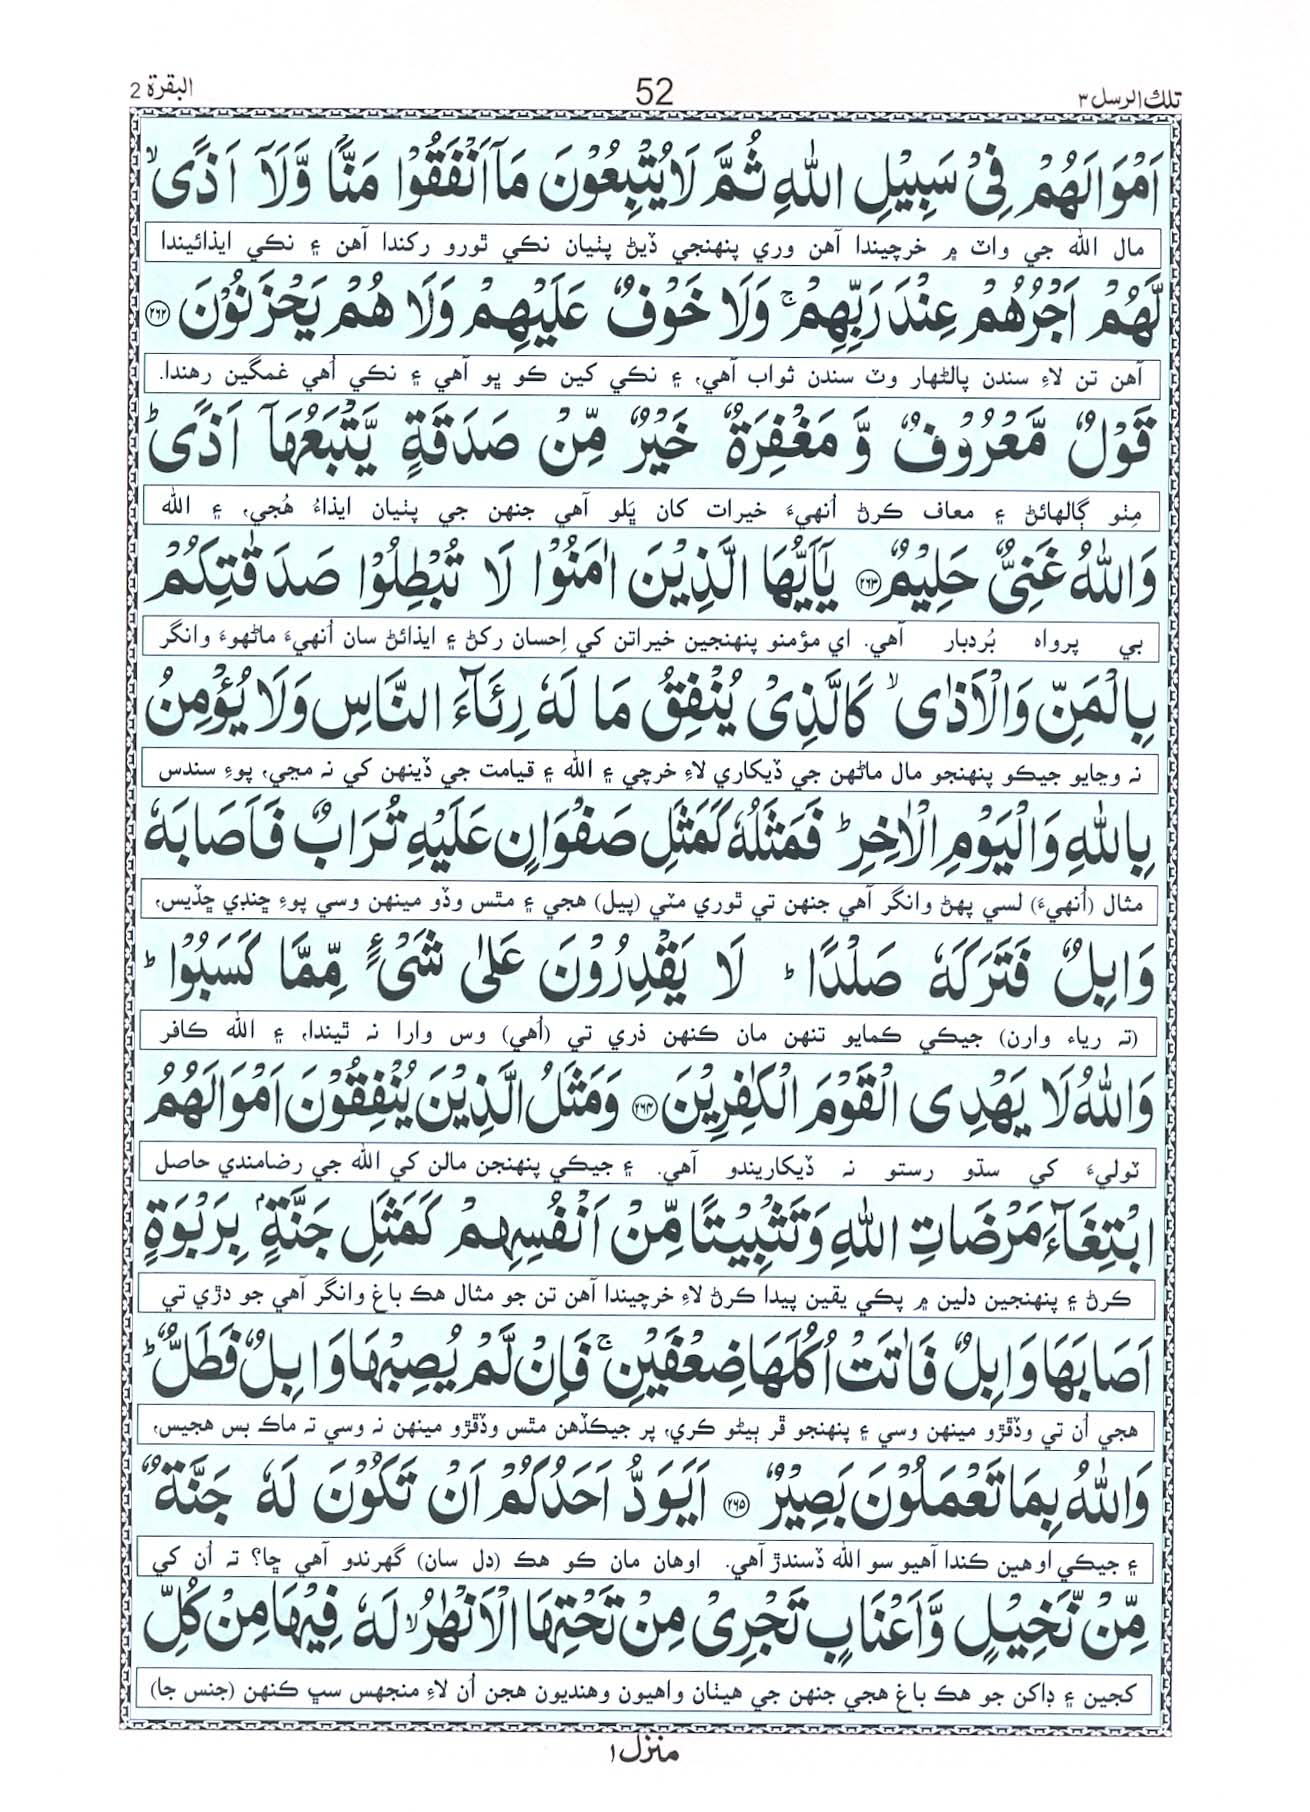 تلك الرسل ٣
52
البقرة 2
اَمْوَالَهُمْ فِيْ سَبِيْلِ اللّٰهِ ثُمَّ لَا يُتْبِعُوْنَ مَاۤ اَنْفَقُوْا مَنًّا وَّلَاۤ اَذًىۙ
مال الله جي واٽ ۾ خرچيندا آهن وري پنهنجي ڏيڻ پٺيان نڪي ٿورو رکندا آهن ۽ نڪي ايذائيندا
لَّهُمْ اَجْرُهُمْ عِنْدَ رَبِّهِمْۚ وَلَا خَوْفٌ عَلَيْهِمْ وَلَا هُمْ يَحْزَنُوْنَ ﴿٢٦٢﴾
آهن تن لاءِ سندن پالڻهار وٽ سندن ثواب آهي، ۽ نڪي کين ڪو ڀؤ آهي ۽ نڪي اُهي غمگين رهندا.
قَوْلٌ مَّعْرُوْفٌ وَّ مَغْفِرَةٌ خَيْرٌ مِّنْ صَدَقَةٍ يَّتْبَعُهَاۤ اَذًىؕ
مِٺو ڳالهائڻ ۽ معاف ڪرڻ اُنهيءَ خيرات کان ڀَلو آهي جنهن جي پٺيان ايذاءُ هُجي، ۽ الله
وَاللّٰهُ غَنِيٌّ حَلِيْمٌ ﴿٢٦٣﴾ يٰۤاَيُّهَا الَّذِيْنَ اٰمَنُوْا لَا تُبْطِلُوْا صَدَقٰتِكُمْ
بي پرواه بُردبار آهي. اي مؤمنو پنهنجين خيراتن کي اِحسان رکڻ ۽ ايذائڻ سان اُنهيءَ ماڻهوءَ وانگر
بِالْمَنِّ وَالْاَذٰىۙ كَالَّذِيْ يُنْفِقُ مَا لَهٗ رِئَآءَ النَّاسِ وَلَا يُؤْمِنُ
نہ وڃايو جيڪو پنهنجو مال ماڻهن جي ڏيکاري لاءِ خرچي ۽ الله ۽ قيامت جي ڏينهن کي نہ مڃي، پوءِ سندس
بِاللّٰهِ وَالْيَوْمِ الْاٰخِرِؕ فَمَثَلُهٗ كَمَثَلِ صَفْوَانٍ عَلَيْهِ تُرَابٌ فَاَصَابَهٗ
مثال (اُنهيءَ) لسي پهڻ وانگر آهي جنهن تي ٿوري مٽي (پيل) هجي ۽ مٿس وڏو مينهن وسي پوءِ ڇنڊي ڇڏيس،
وَابِلٌ فَتَرَكَهٗ صَلْدًاؕ لَا يَقْدِرُوْنَ عَلٰى شَيْءٍ مِّمَّا كَسَبُوْاؕ
(تہ رياء وارن) جيڪي ڪمايو تنهن مان ڪنهن ذري تي (اُهي) وس وارا نہ ٿيندا، ۽ الله ڪافر
وَاللّٰهُ لَا يَهْدِى الْقَوْمَ الْكٰفِرِيْنَ ﴿٢٦٤﴾ وَمَثَلُ الَّذِيْنَ يُنْفِقُوْنَ اَمْوَالَهُمُ
ٽوليءَ کي سڌو رستو نہ ڏيکاريندو آهي. ۽ جيڪي پنهنجن مالن کي الله جي رضامندي حاصل
ابْتِغَآءَ مَرْضَاتِ اللّٰهِ وَتَثْبِيْتًا مِّنْ اَنْفُسِهِمْ كَمَثَلِ جَنَّةٍۭ بِرَبْوَةٍ
ڪرڻ ۽ پنهنجين دلين ۾ پڪي يقين پيدا ڪرڻ لاءِ خرچيندا آهن تن جو مثال هڪ باغ وانگر آهي جو دڙي تي
اَصَابَهَا وَابِلٌ فَاٰتَتْ اُكُلَهَا ضِعْفَيْنِۚ فَاِنْ لَّمْ يُصِبْهَا وَابِلٌ فَطَلٌّؕ
هجي اُن تي وڏڦڙو مينهن وسي ۽ پنهنجو ڦر ٻيڻو ڪري، پر جيڪڏهن مٿس وڏڦڙو مينهن نہ وسي تہ ماڪ بس هجيس،
وَاللّٰهُ بِمَا تَعْمَلُوْنَ بَصِيْرٌ ﴿٢٦٥﴾ اَيَوَدُّ اَحَدُكُمْ اَنْ تَكُوْنَ لَهٗ جَنَّةٌ
۽ جيڪي اوهين ڪندا آهيو سو الله ڏسندڙ آهي. اوهان مان ڪو هڪ (دل سان) گهرندو آهي ڇا؟ تہ اُن کي
مِّنْ نَّخِيْلٍ وَّاَعْنَابٍ تَجْرِيْ مِنْ تَحْتِهَا الْاَنْهٰرُۙ لَهٗ فِيْهَا مِنْ كُلِّ
کجين ۽ ڊاکن جو هڪ باغ هجي جنهن جي هيٺان واهيون وهنديون هجن اُن لاءِ منجهس سڀ ڪنهن (جنس جا)
منزل ١